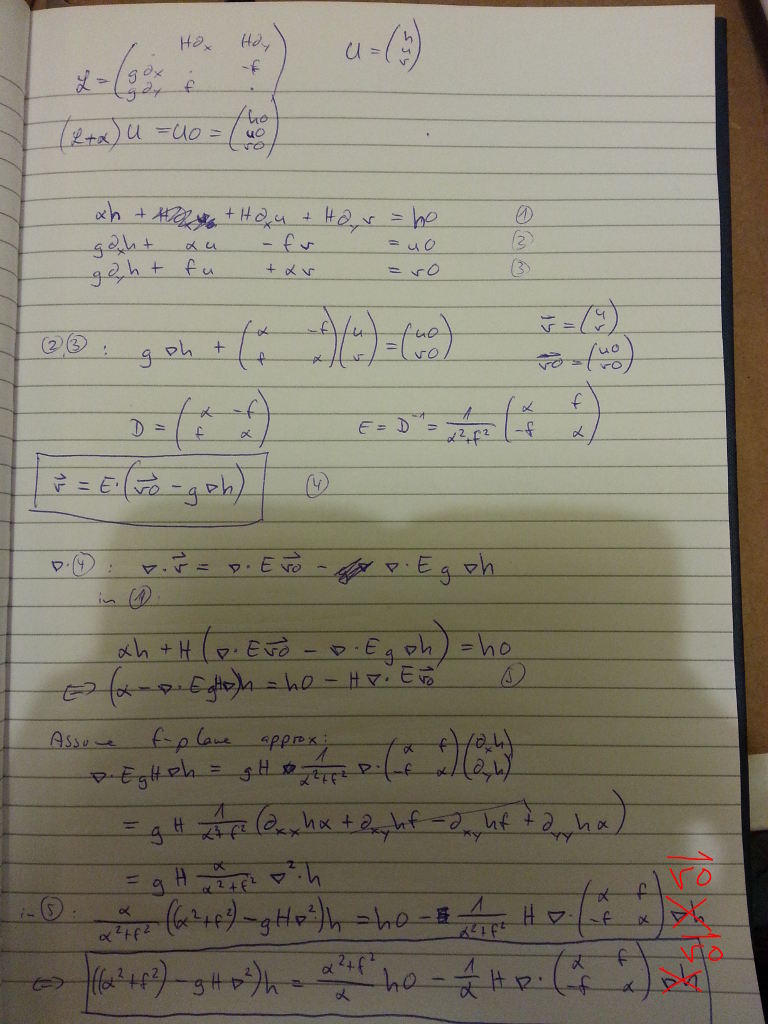 L = ( . H∂x H∂y ; g∂x . -f ; g∂y f . ) U = ( h ; u ; v )
(L+α) U = U0 = ( h0 ; u0 ; v0 )
αh + + H∂xu + H∂yv = h0 ①
g∂xh + αu - fv = u0 ②
g∂yh + fu + αv = v0 ③
②,③ : g∇h + ( α -f ; f α ) ( u ; v ) = ( u0 ; v0 ) v⃗ = ( u ; v )
v⃗0 = ( u0 ; v0 )
D = ( α -f ; f α ) E = D⁻¹ = 1/(α²+f²) ( α f ; -f α )
v⃗ = E·(v⃗0 - g∇h) ④
∇·④ : ∇·v⃗ = ∇·E v⃗0 - ∇·E g ∇h
in ①:
αh + H (∇·E v⃗0 - ∇·E g ∇h) = h0
⇔ (α - ∇·E g H∇)h = h0 - H∇·E v⃗0 ⑤
Assume f-plane approx:
∇·E g H ∇h = g H 1/(α²+f²) ∇·( α f ; -f α ) ( ∂xh ; ∂yh )
= g H 1/(α²+f²) (∂xx hα + ∂xy hf - ∂xy hf + ∂yy hα)
= g H α/(α²+f²) ∇²·h
in ⑤: α/(α²+f²) ((α²+f²) - gH∇²)h = h0 - 1/(α²+f²) H ∇·( α f ; -f α ) ∇h v⃗0
⇔ ((α²+f²) - gH∇²)h = (α²+f²)/α h0 - 1/α H ∇·( α f ; -f α ) ∇h v⃗0